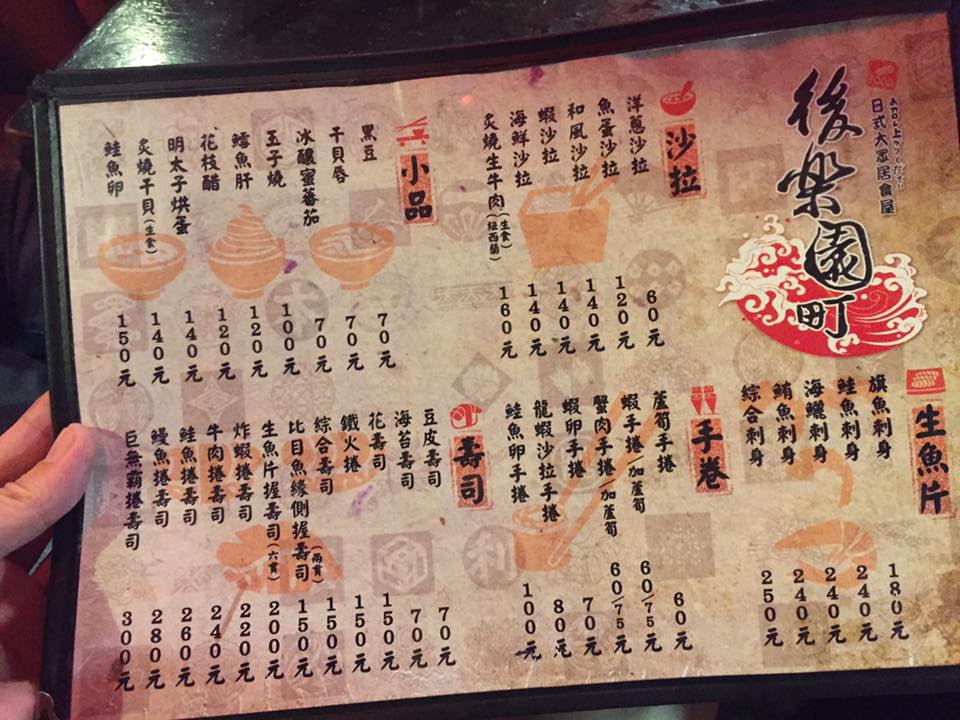 日式大眾居食屋
後楽園町
沙拉
洋蔥沙拉 60元
魚蛋沙拉 120元
和風沙拉 140元
蝦沙拉 140元
海鮮沙拉 140元
炙燒生牛肉(生食)(紐西蘭) 160元
小品
黑豆 70元
干貝唇 70元
冰釀蜜蕃茄 70元
玉子燒 100元
鱈魚肝 120元
花枝醋 120元
明太子烘蛋 140元
炙燒干貝(生食) 140元
鮭魚卵 150元
生魚片
旗魚刺身 180元
鮭魚刺身 240元
海鱺刺身 240元
鮪魚刺身 240元
綜合刺身 250元
手卷
蘆筍手捲 60元
蝦手捲/加蘆筍 60/75元
蟹肉手捲/加蘆筍 60/75元
蝦卵手捲 70元
龍蝦沙拉手捲 80元
鮭魚卵手捲 100元
壽司
豆皮壽司 70元
海苔壽司 70元
花壽司 150元
鐵火捲 150元
綜合壽司 150元
比目魚緣側握壽司(兩貫) 150元
生魚片握壽司(六貫) 200元
炸蝦捲壽司 220元
牛肉捲壽司 240元
鮭魚捲壽司 260元
鰻魚捲壽司 280元
巨無霸捲壽司 300元